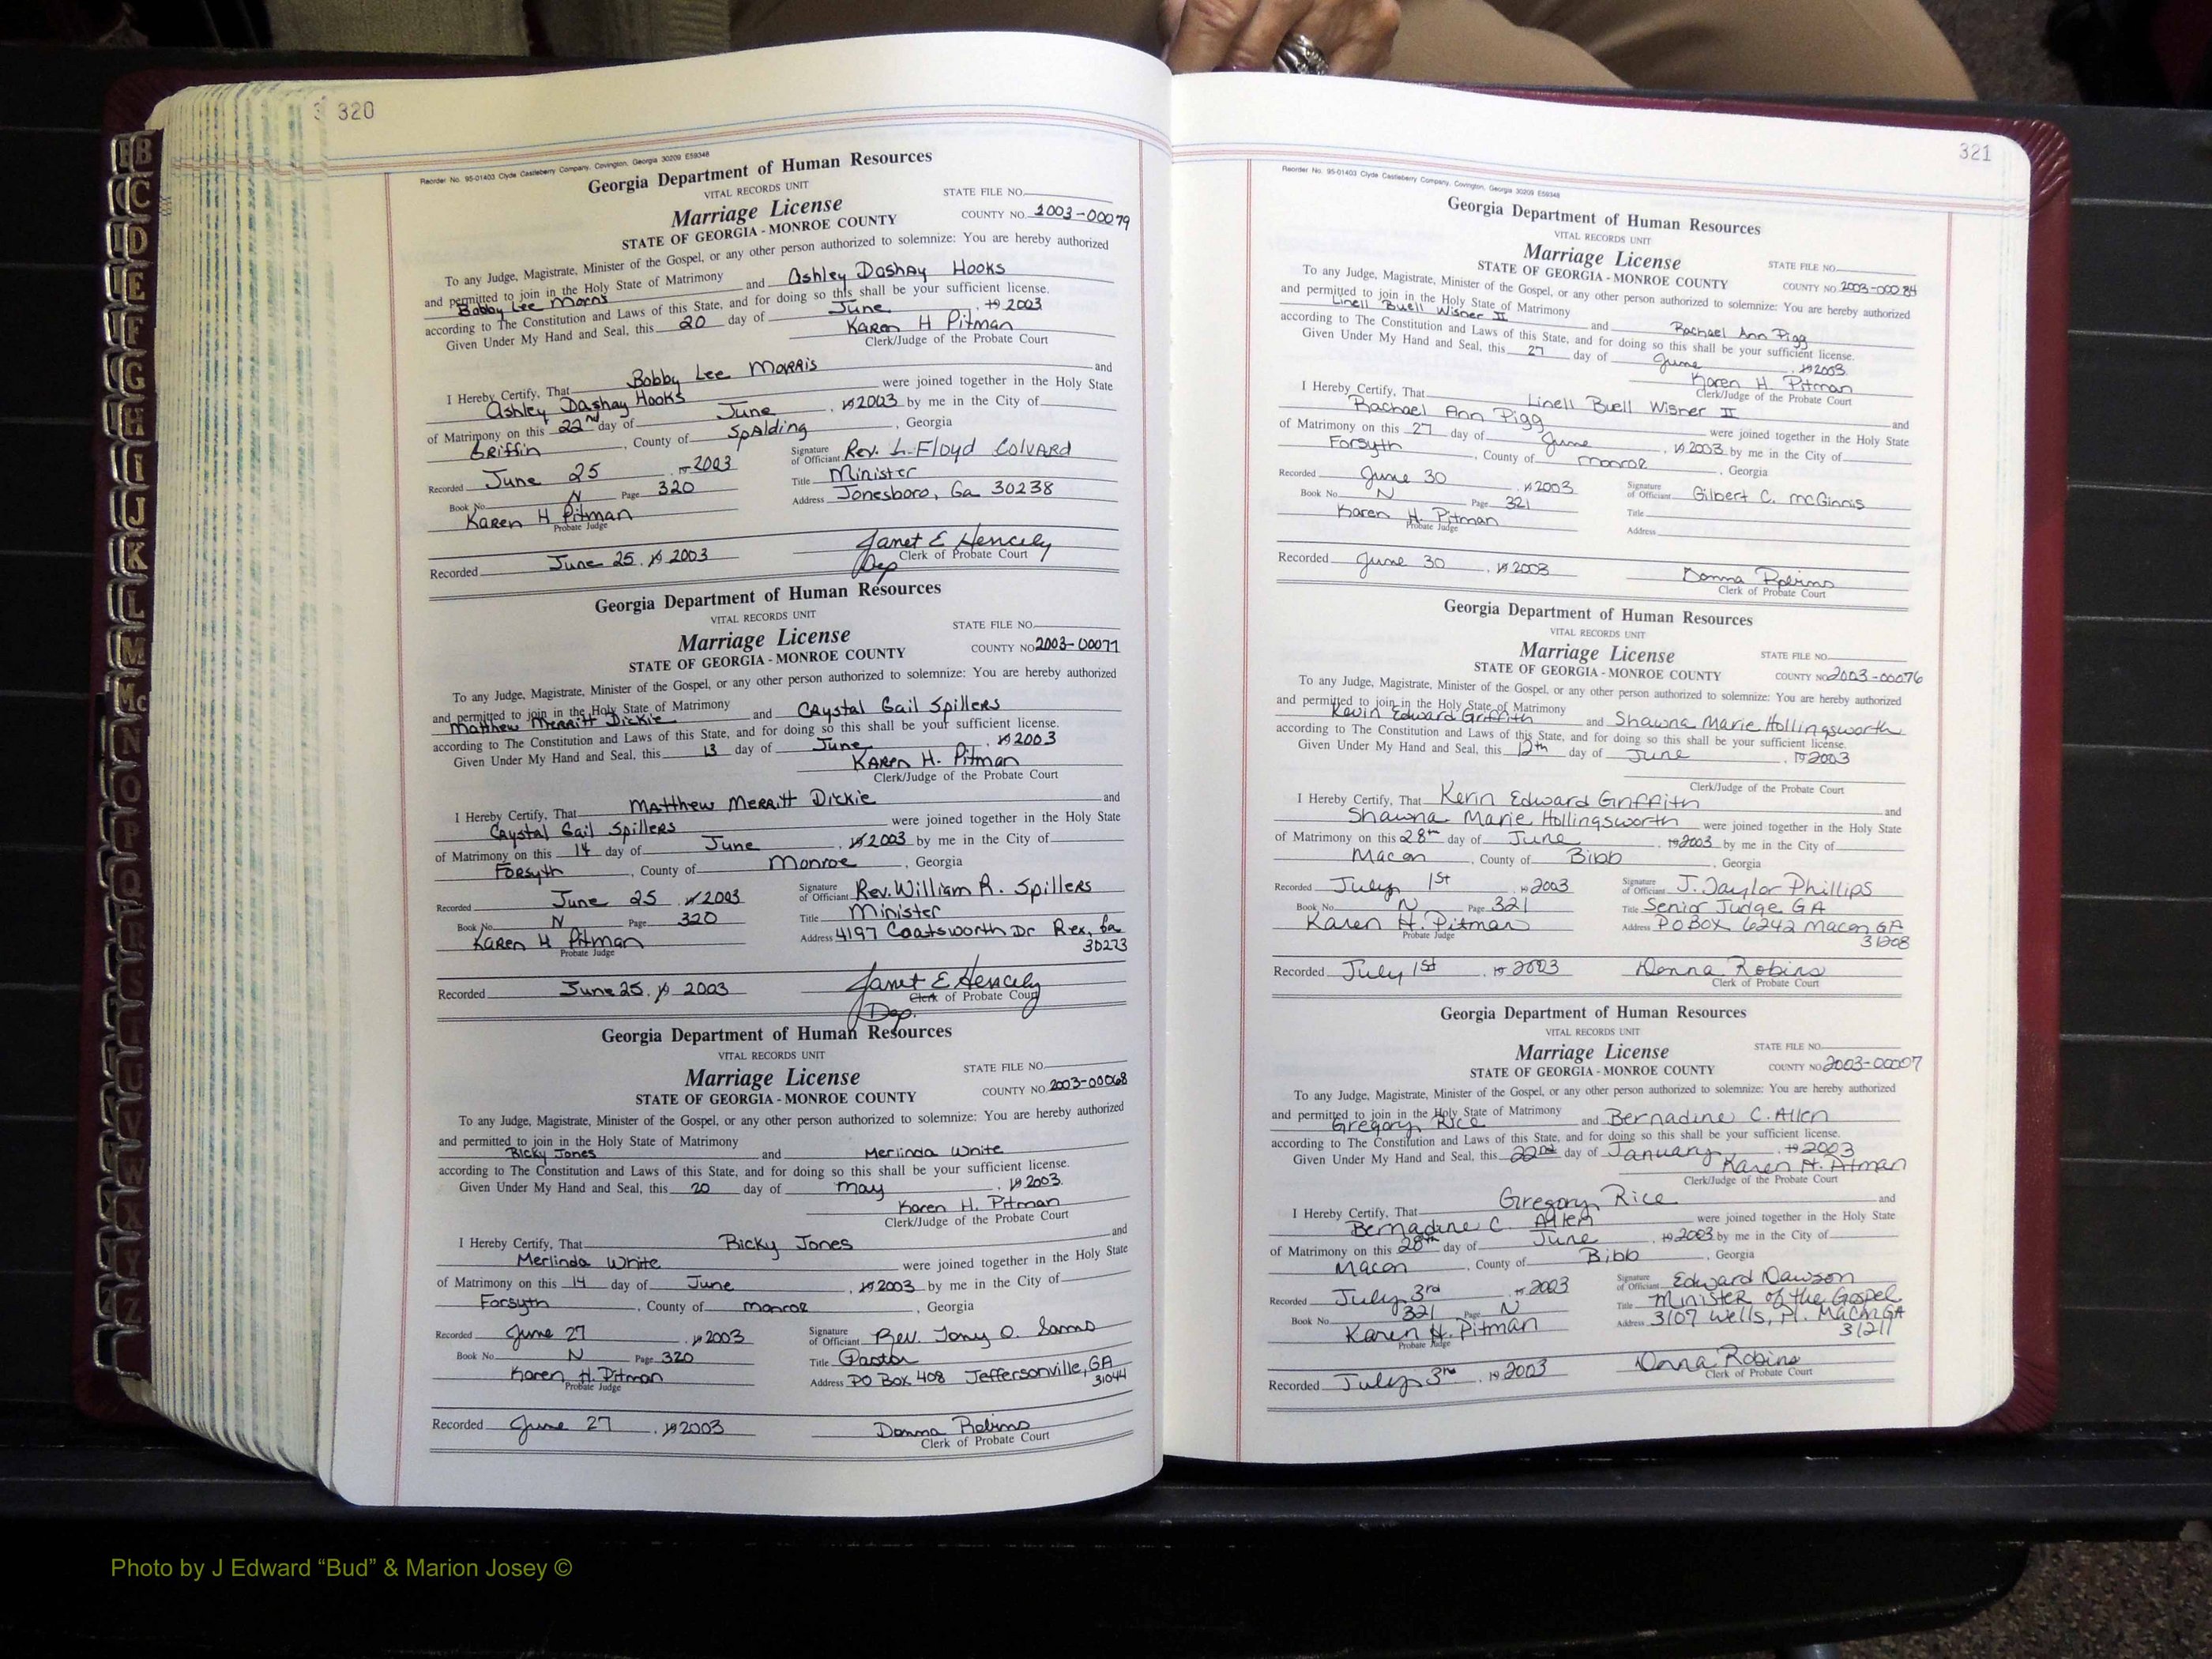 320
Reorder No. 95-01403 Clyde Castleberry Company, Covington, Georgia 30209 E59348
Georgia Department of Human Resources
VITAL RECORDS UNIT
STATE FILE NO.
Marriage License
COUNTY NO. 2003-00079
STATE OF GEORGIA - MONROE COUNTY
To any Judge, Magistrate, Minister of the Gospel, or any other person authorized to solemnize: You are hereby authorized
and permitted to join in the Holy State of Matrimony
Bobby Lee Morris and Ashley Dashay Hooks
according to The Constitution and Laws of this State, and for doing so this shall be your sufficient license.
Given Under My Hand and Seal, this 20 day of June, 19 2003
Karen H Pitman
Clerk/Judge of the Probate Court
I Hereby Certify, That Bobby Lee Morris and
Ashley Dashay Hooks were joined together in the Holy State
of Matrimony on this 22nd day of June, 19 2003 by me in the City of
Griffin, County of Spalding, Georgia
Recorded June 25 19 2003
Signature of Officiant Rev. L. Floyd Colvard
Book No. N Page 320
Title Minister
Karen H Pitman
Address Jonesboro, Ga 30238
Probate Judge
Recorded June 25, 19 2003
Janet E Hencely
Clerk of Probate Court
Dep
Georgia Department of Human Resources
VITAL RECORDS UNIT
STATE FILE NO.
Marriage License
COUNTY NO. 2003-00077
STATE OF GEORGIA - MONROE COUNTY
To any Judge, Magistrate, Minister of the Gospel, or any other person authorized to solemnize: You are hereby authorized
and permitted to join in the Holy State of Matrimony
Matthew Merritt Dickie and Crystal Gail Spillers
according to The Constitution and Laws of this State, and for doing so this shall be your sufficient license.
Given Under My Hand and Seal, this 13 day of June, 19 2003
Karen H. Pitman
Clerk/Judge of the Probate Court
I Hereby Certify, That Matthew Merritt Dickie and
Crystal Gail Spillers were joined together in the Holy State
of Matrimony on this 14 day of June, 19 2003 by me in the City of
Forsyth, County of Monroe, Georgia
Recorded June 25 19 2003
Signature of Officiant Rev. William R. Spillers
Book No. N Page 320
Title Minister
Karen H Pitman
Address 4197 Coatsworth Dr Rex, Ga
30273
Probate Judge
Recorded June 25, 19 2003
Janet E Hencely
Clerk of Probate Court
Dep.
Georgia Department of Human Resources
VITAL RECORDS UNIT
STATE FILE NO.
Marriage License
COUNTY NO. 2003-00068
STATE OF GEORGIA - MONROE COUNTY
To any Judge, Magistrate, Minister of the Gospel, or any other person authorized to solemnize: You are hereby authorized
and permitted to join in the Holy State of Matrimony
Ricky Jones and Merlinda White
according to The Constitution and Laws of this State, and for doing so this shall be your sufficient license.
Given Under My Hand and Seal, this 20 day of May, 19 2003.
Karen H. Pitman
Clerk/Judge of the Probate Court
I Hereby Certify, That Ricky Jones and
Merlinda White were joined together in the Holy State
of Matrimony on this 14 day of June, 19 2003 by me in the City of
Forsyth, County of Monroe, Georgia
Recorded June 27, 19 2003
Signature of Officiant Rev. Tony O. Sams
Book No. N Page 320
Title Pastor
Karen H. Pitman
Address PO Box 408 Jeffersonville, GA
31044
Probate Judge
Recorded June 27, 19 2003
Donna Robins
Clerk of Probate Court
321
Reorder No. 95-01403 Clyde Castleberry Company, Covington, Georgia 30209 E59348
Georgia Department of Human Resources
VITAL RECORDS UNIT
Marriage License
STATE FILE NO.
STATE OF GEORGIA - MONROE COUNTY
COUNTY NO. 2003-00084
To any Judge, Magistrate, Minister of the Gospel, or any other person authorized to solemnize: You are hereby authorized
and permitted to join in the Holy State of Matrimony
Linell Buell Wisner II and Rachael Ann Pigg
according to The Constitution and Laws of this State, and for doing so this shall be your sufficient license.
Given Under My Hand and Seal, this 27 day of June, 19 2003.
Karen H. Pitman
Clerk/Judge of the Probate Court
I Hereby Certify, That Linell Buell Wisner II and
Rachael Ann Pigg were joined together in the Holy State
of Matrimony on this 27 day of June, 19 2003 by me in the City of
Forsyth, County of Monroe, Georgia
Recorded June 30, 19 2003
Signature of Officiant Gilbert C. McGinnis
Book No. N Page 321
Title
Karen H. Pitman
Address
Probate Judge
Recorded June 30, 19 2003
Donna Robins
Clerk of Probate Court
Georgia Department of Human Resources
VITAL RECORDS UNIT
Marriage License
STATE FILE NO.
STATE OF GEORGIA - MONROE COUNTY
COUNTY NO. 2003-00076
To any Judge, Magistrate, Minister of the Gospel, or any other person authorized to solemnize: You are hereby authorized
and permitted to join in the Holy State of Matrimony
Kevin Edward Griffith and Shawna Marie Hollingsworth
according to The Constitution and Laws of this State, and for doing so this shall be your sufficient license.
Given Under My Hand and Seal, this 12th day of June, 19 2003
Clerk/Judge of the Probate Court
I Hereby Certify, That Kevin Edward Griffith and
Shawna Marie Hollingsworth were joined together in the Holy State
of Matrimony on this 28th day of June, 19 2003 by me in the City of
Macon, County of Bibb, Georgia
Recorded July 1st, 19 2003
Signature of Officiant J. Taylor Phillips
Book No. N Page 321
Title Senior Judge GA
Karen H. Pitman
Address PO Box 6242 Macon GA
31208
Probate Judge
Recorded July 1st, 19 2003
Donna Robins
Clerk of Probate Court
Georgia Department of Human Resources
VITAL RECORDS UNIT
Marriage License
STATE FILE NO.
STATE OF GEORGIA - MONROE COUNTY
COUNTY NO. 2003-00007
To any Judge, Magistrate, Minister of the Gospel, or any other person authorized to solemnize: You are hereby authorized
and permitted to join in the Holy State of Matrimony
Gregory Rice and Bernadine C. Allen
according to The Constitution and Laws of this State, and for doing so this shall be your sufficient license.
Given Under My Hand and Seal, this 22nd day of January, 19 2003
Karen H. Pitman
Clerk/Judge of the Probate Court
I Hereby Certify, That Gregory Rice and
Bernadine C. Allen were joined together in the Holy State
of Matrimony on this 28th day of June, 19 2003 by me in the City of
Macon, County of Bibb, Georgia
Recorded July 3rd, 19 2003
Signature of Officiant Edward Dawson
Book No. 321 Page N
Title Minister of the Gospel
Karen H. Pitman
Address 3107 Wells, Pl. Macon GA
31211
Probate Judge
Recorded July 3rd, 19 2003
Donna Robins
Clerk of Probate Court
B
C
D
E
F
G
H
I
J
K
L
M
Mc
N
O
P
Q
R
S
T
U
V
W
X
Y
Z
Photo by J Edward “Bud” & Marion Josey ©